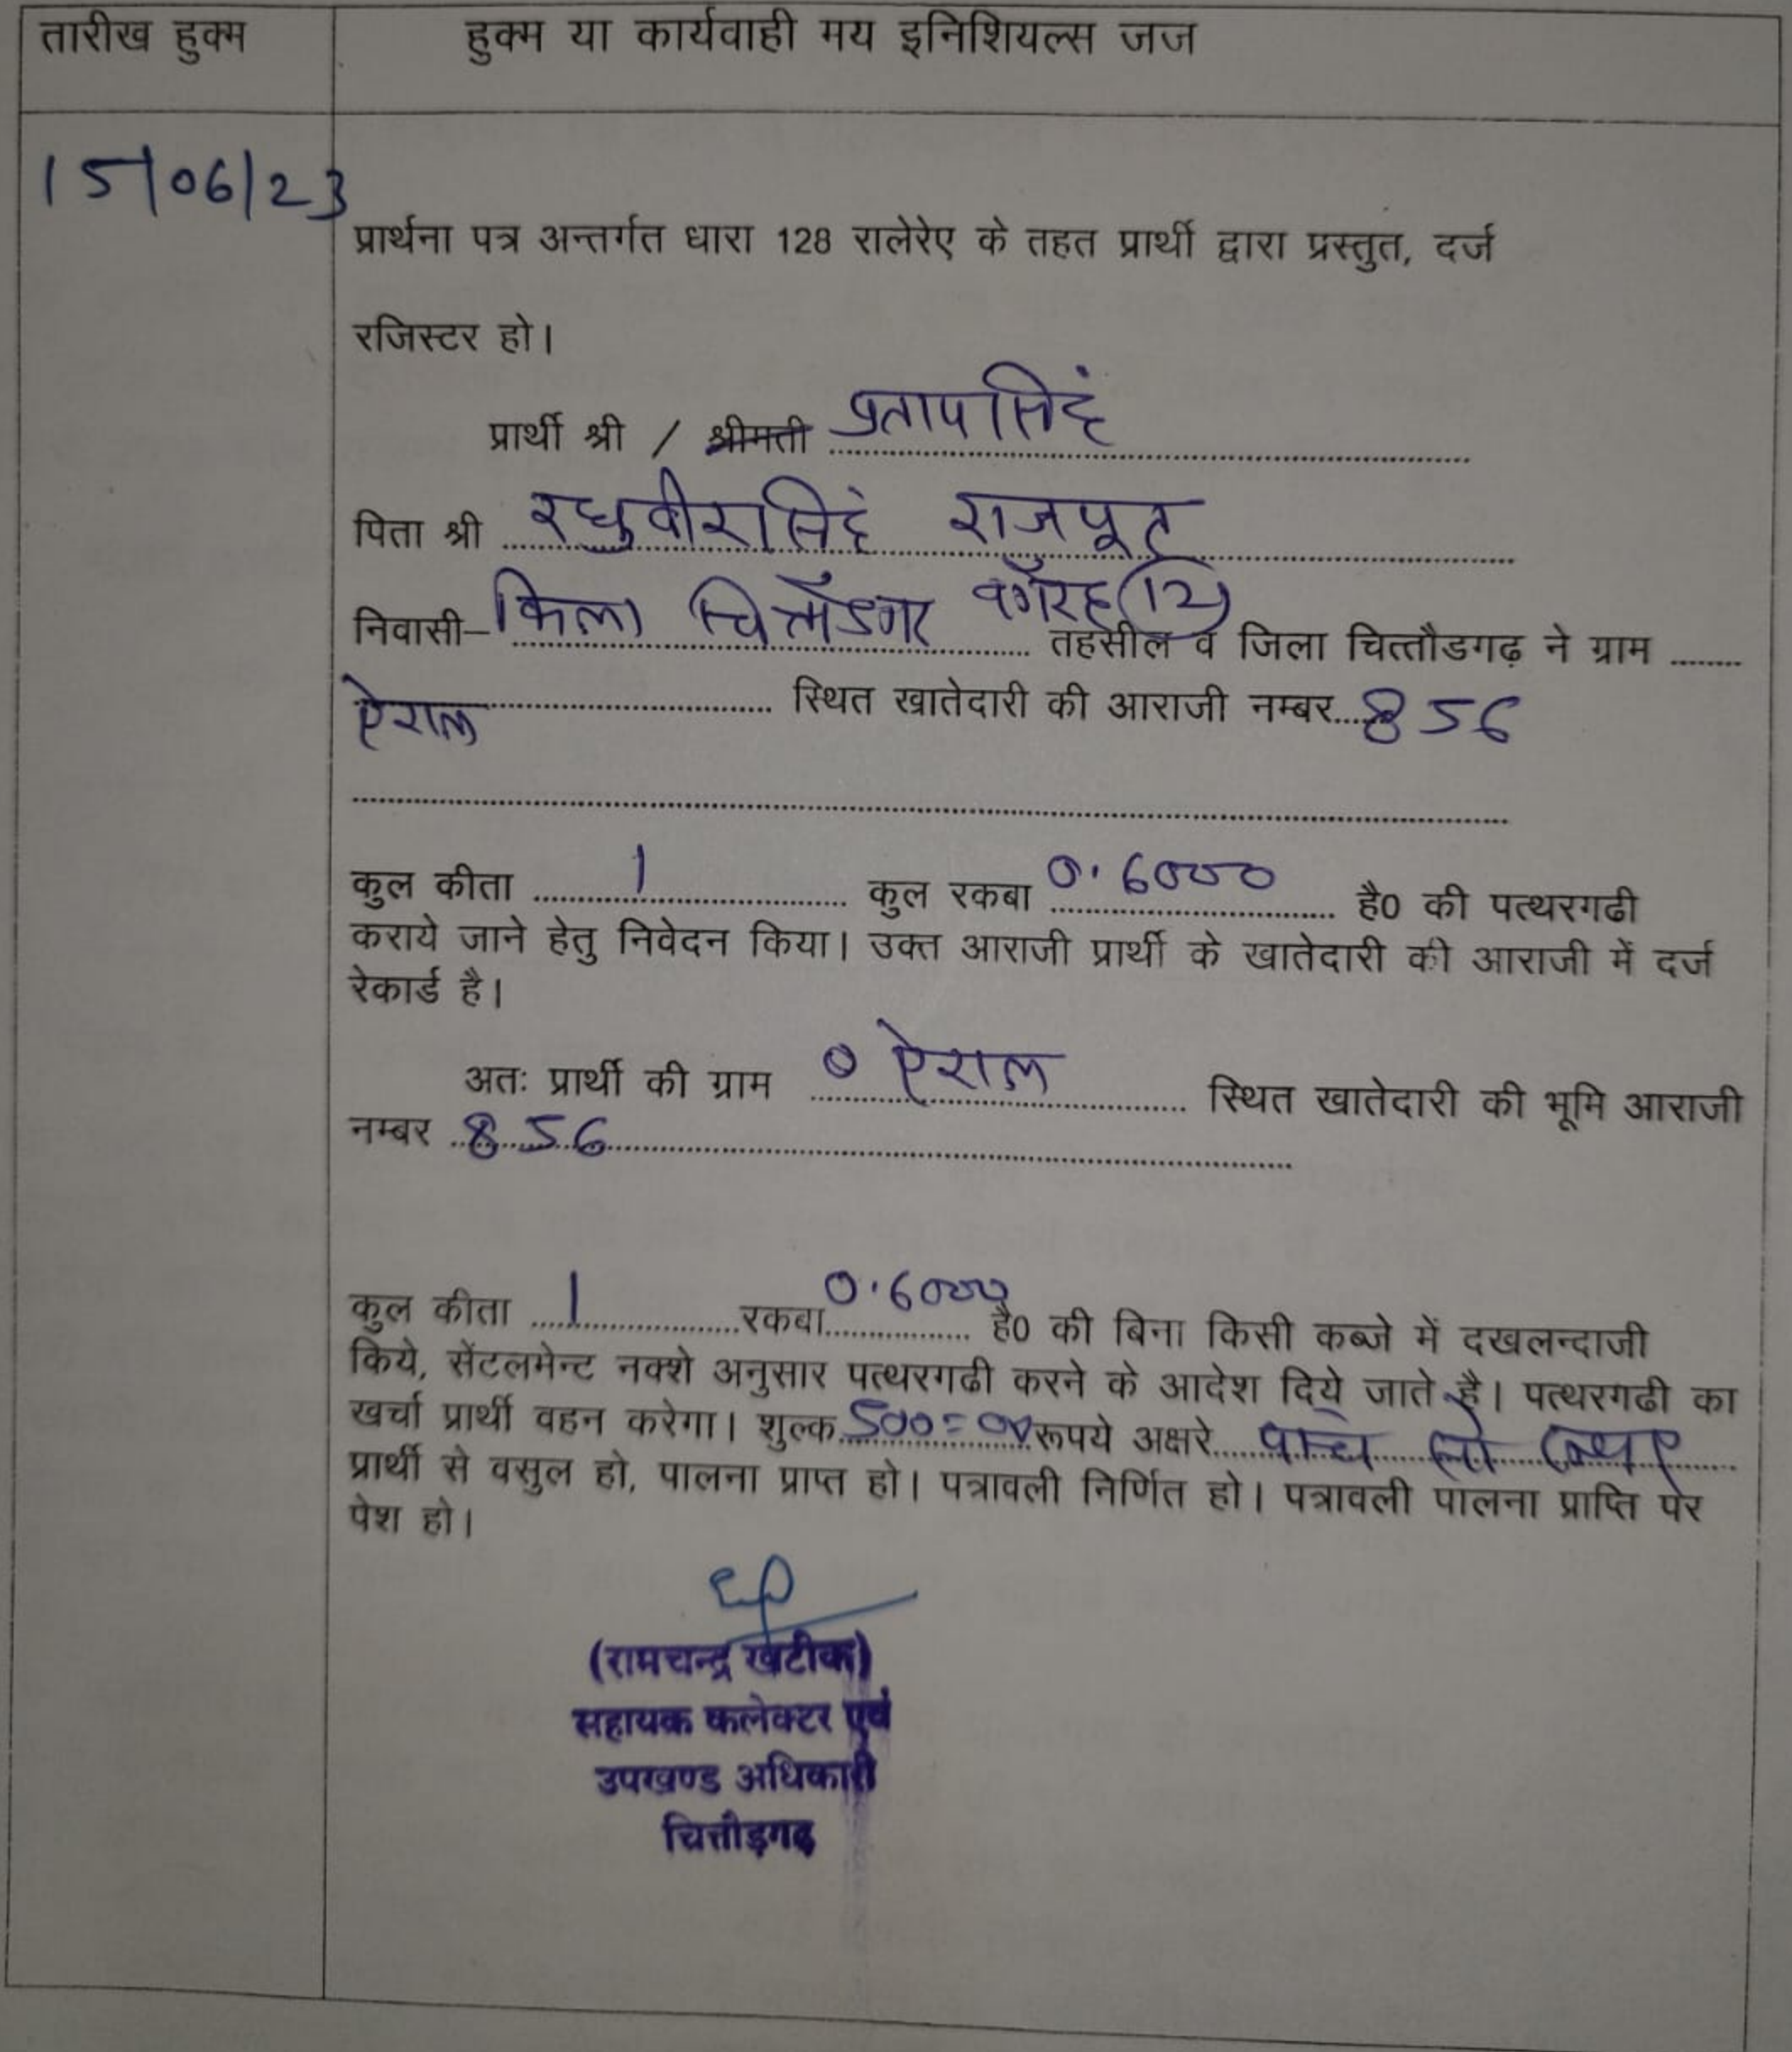 तारीख हुक्म
हुक्म या कार्यवाही मय इनिशियल्स जज
15/06/23
प्रार्थना पत्र अन्तर्गत धारा 128 रालेरेए के तहत प्रार्थी द्वारा प्रस्तुत, दर्ज
रजिस्टर हो।
प्रार्थी श्री / श्रीमती प्रतापसिंह
पिता श्री रघुवीरसिंह राजपूत
निवासी- किला चित्तौडगढ वगैरह (12) तहसील व जिला चित्तौडगढ़ ने ग्राम
ऐराल स्थित खातेदारी की आराजी नम्बर 856
कुल कीता 1 कुल रकबा 0.6000 है0 की पत्थरगढी
कराये जाने हेतु निवेदन किया। उक्त आराजी प्रार्थी के खातेदारी की आराजी में दर्ज
रेकार्ड है।
अतः प्रार्थी की ग्राम ऐराल स्थित खातेदारी की भूमि आराजी
नम्बर 856
कुल कीता 1 रकबा 0.6000 है0 की बिना किसी कब्जे में दखलन्दाजी
किये, सेंटलमेन्ट नक्शे अनुसार पत्थरगढी करने के आदेश दिये जाते है। पत्थरगढी का
खर्चा प्रार्थी वहन करेगा। शुल्क 500=00 रूपये अक्षरे पान्च सो रूपए
प्रार्थी से वसुल हो, पालना प्राप्त हो। पत्रावली निर्णित हो। पत्रावली पालना प्राप्ति पर
पेश हो।
(रामचन्द्र खटीक)
सहायक कलेक्टर एवं
उपखण्ड अधिकारी
चित्तौड़गढ़